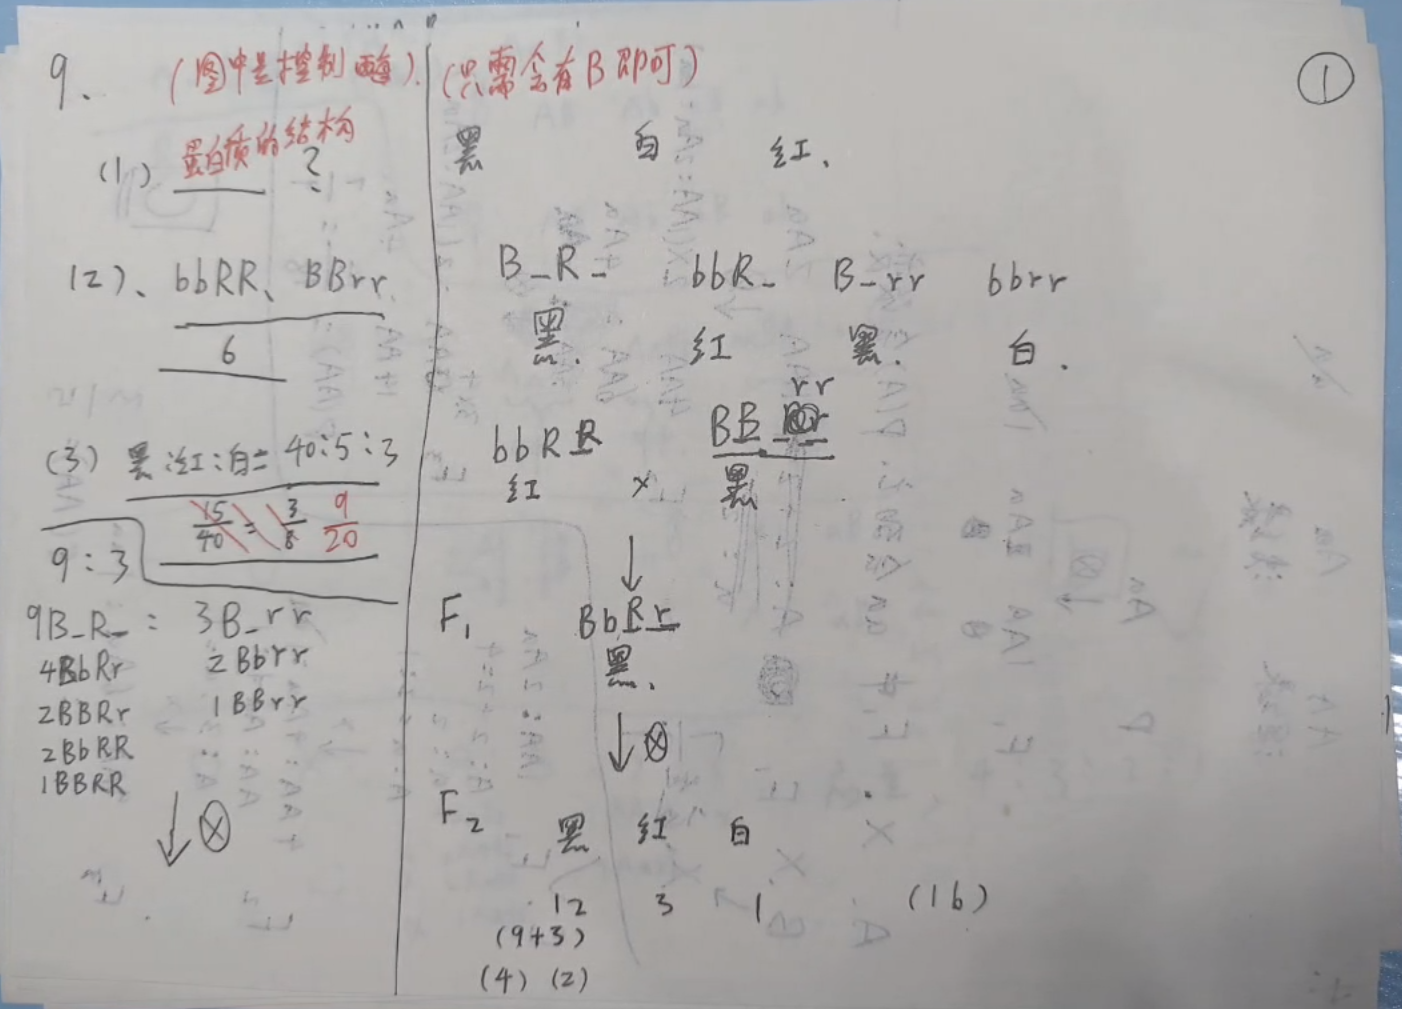 9、 (图中是控制酶) (只需含有B即可) ①
蛋白质的结构
(1) ?
黑 白 红、
(2)、 bbRR、 BBrr
6
B_R_ bbR_ B_rr bbrr
黑. 红 黑. 白.
(3) 黑:红:白= 40:5:3
15/40 = 3/8 9/20
9:3
9B_R_ : 3B_rr
4BbRr 2Bbrr
2BBRr 1BBrr
2BbRR
1BBRR
↓⊗
rr
bbRR BB
红 × 黑
↓
F₁ BbRr
黑、
↓⊗
F₂ 黑 红 白
12 3 1 (16)
(9+3)
(4) (2)